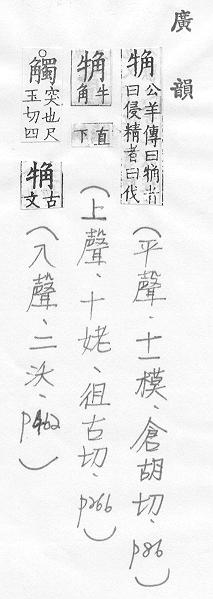 廣韻
觕 公羊傳曰觕者
曰侵精者曰伐
(平聲、十一模、倉胡切、p86)
觕 牛角
直下
(上聲、十姥、徂古切、p266)
觸 突也尺
玉切四
觕 古文
(入聲、二沃、p462)